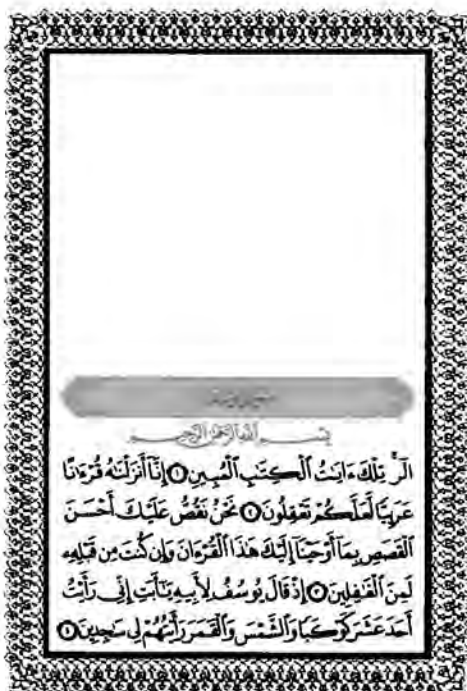 بِسْمِ اللَّهِ الرَّحْمَٰنِ الرَّحِيمِ
الٓرۚ تِلْكَ ءَايَٰتُ ٱلْكِتَٰبِ ٱلْمُبِينِ ١ إِنَّآ أَنزَلْنَٰهُ قُرْءَٰنًا
عَرَبِيًّا لَّعَلَّكُمْ تَعْقِلُونَ ٢ نَحْنُ نَقُصُّ عَلَيْكَ أَحْسَنَ
ٱلْقَصَصِ بِمَآ أَوْحَيْنَآ إِلَيْكَ هَٰذَا ٱلْقُرْءَانَ وَإِن كُنتَ مِن قَبْلِهِۦ
لَمِنَ ٱلْغَٰفِلِينَ ٣ إِذْ قَالَ يُوسُفُ لِأَبِيهِ يَٰٓأَبَتِ إِنِّى رَأَيْتُ
أَحَدَ عَشَرَ كَوْكَبًا وَٱلشَّمْسَ وَٱلْقَمَرَ رَأَيْتُهُمْ لِى سَٰجِدِينَ ٤